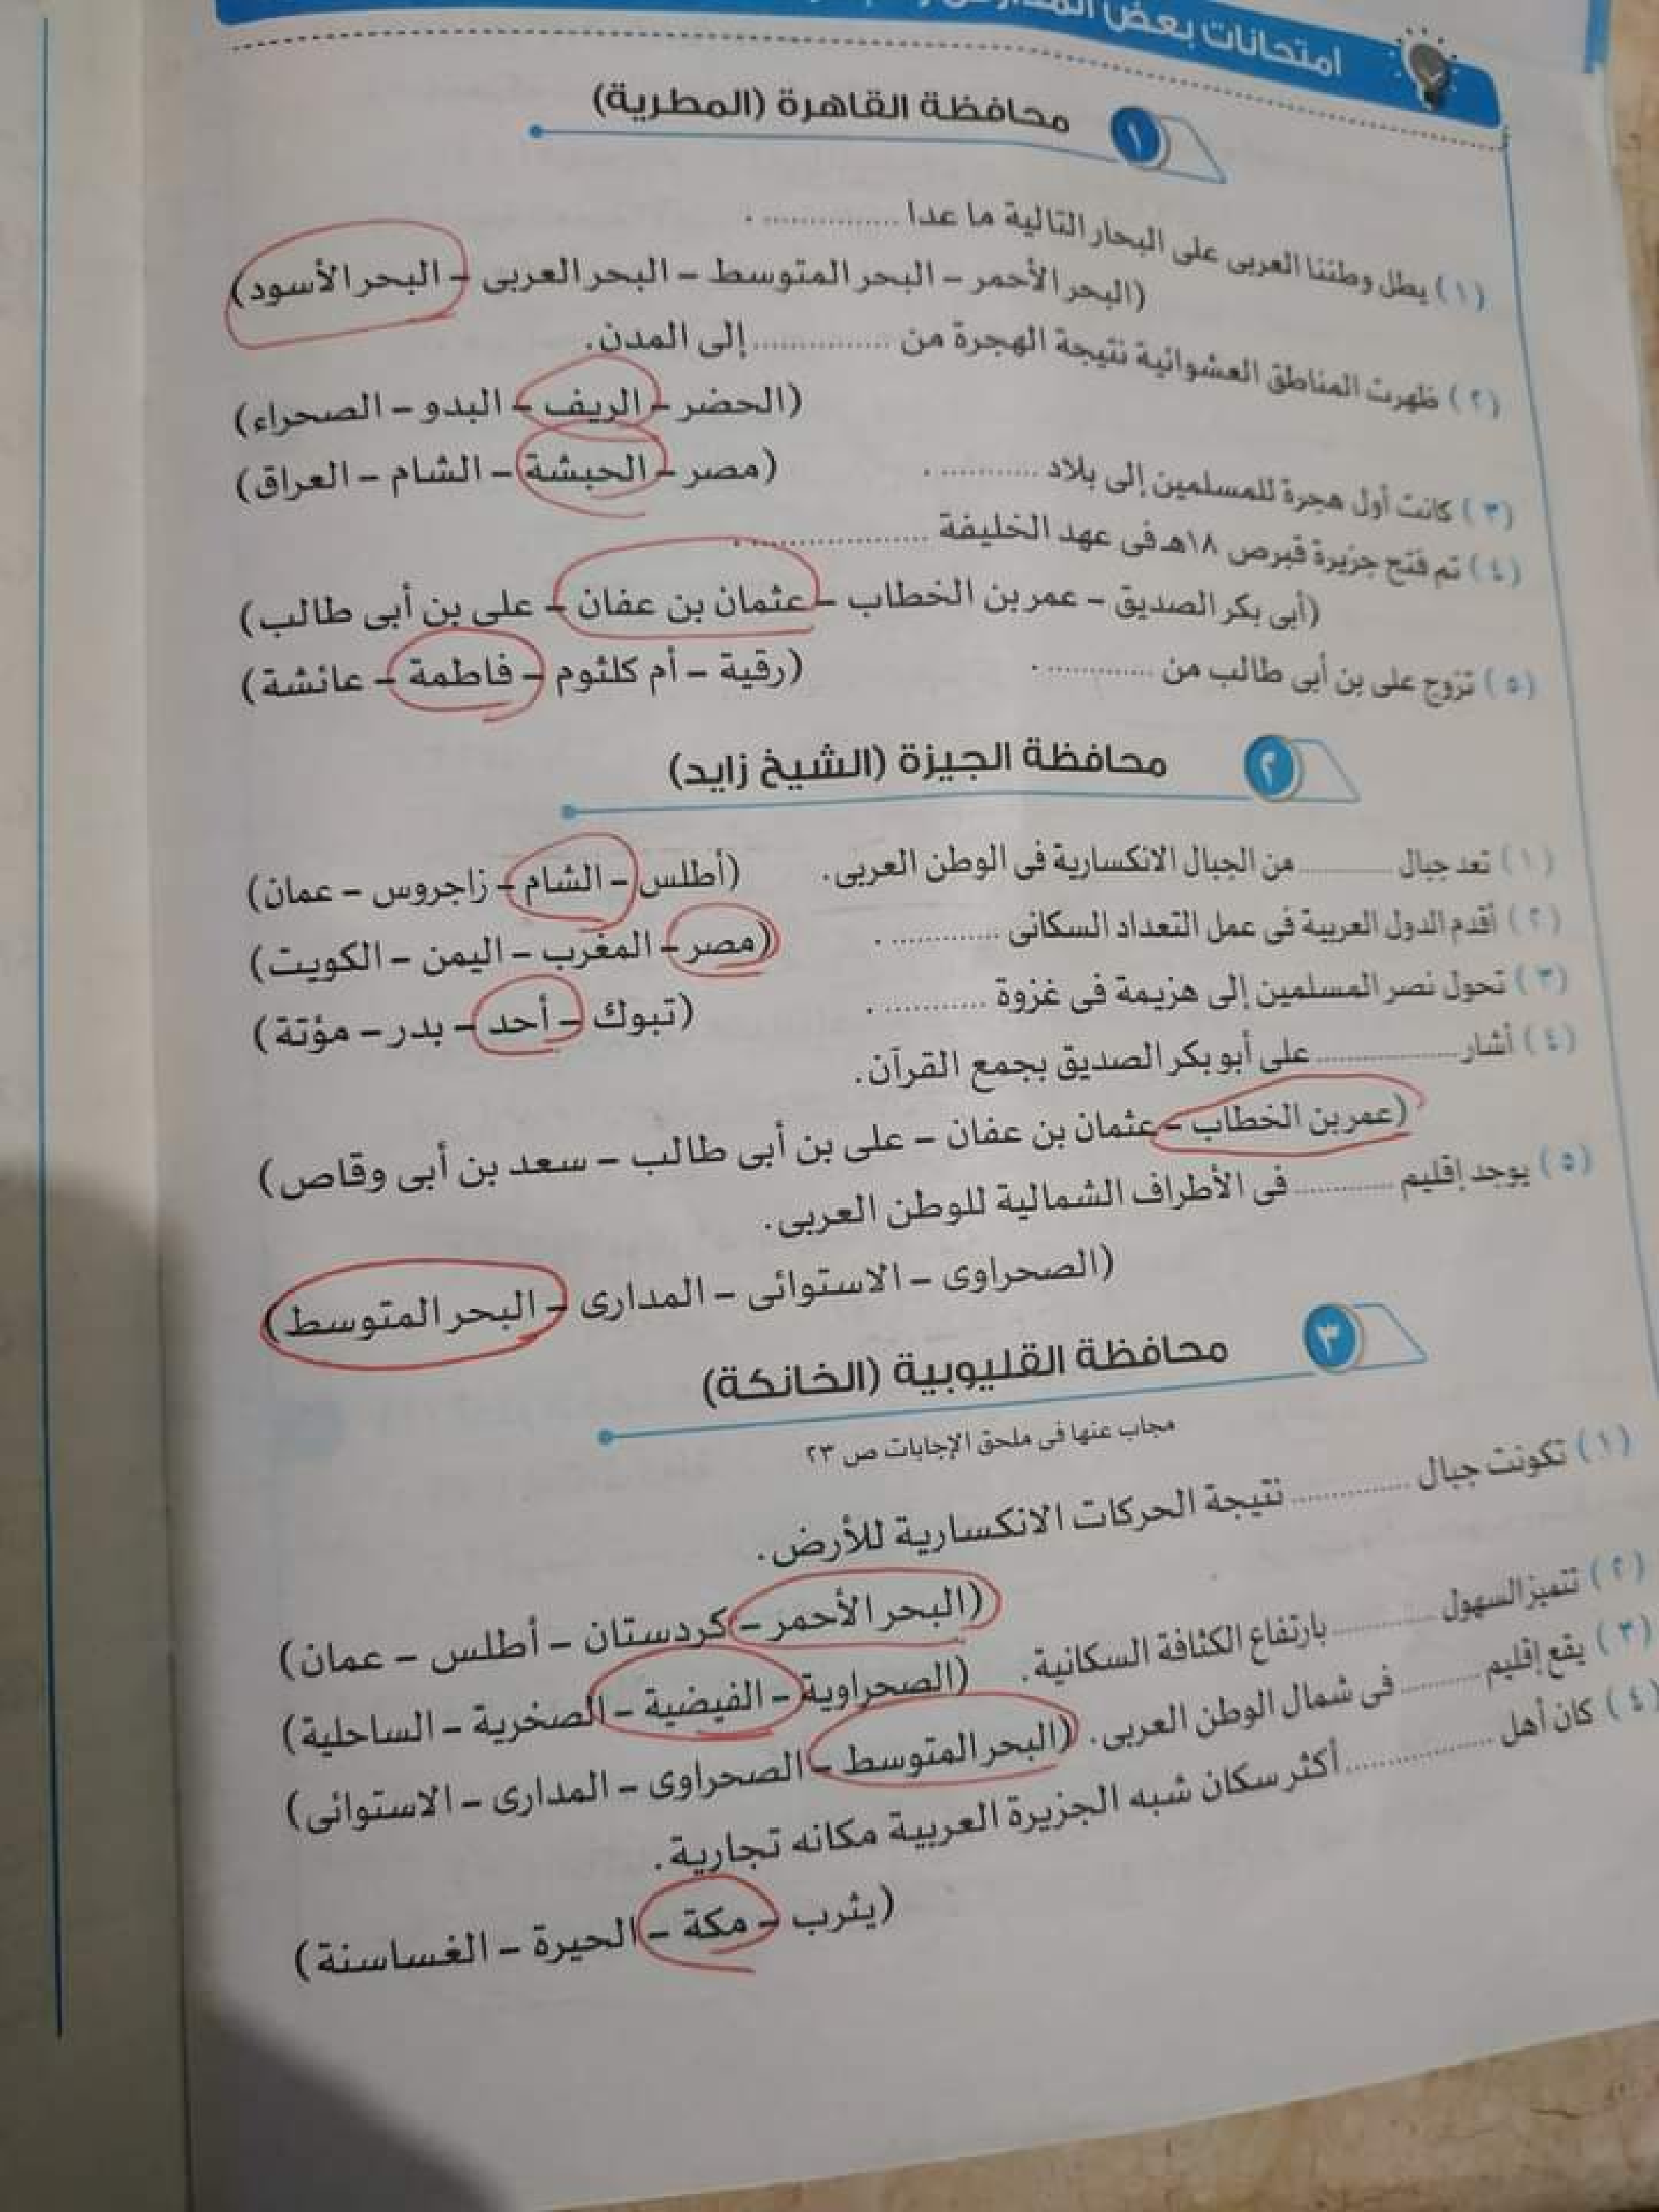 امتحانات بعض
١ محافظة القاهرة (المطرية)
(١) يطل وطننا العربى على البحار التالية ما عدا ............... .
(البحر الأحمر – البحر المتوسط – البحر العربى – البحر الأسود)
(٢) ظهرت المناطق العشوائية نتيجة الهجرة من ............... إلى المدن.
(الحضر – الريف – البدو – الصحراء)
(٣) كانت أول هجرة للمسلمين إلى بلاد ............ . (مصر – الحبشة – الشام – العراق)
(٤) تم فتح جزيرة قبرص ١٨هـ فى عهد الخليفة .................... .
(أبى بكر الصديق – عمر بن الخطاب – عثمان بن عفان – على بن أبى طالب)
(٥) تزوج على بن أبى طالب من ............ . (رقية – أم كلثوم – فاطمة – عائشة)
٢ محافظة الجيزة (الشيخ زايد)
(١) تعد جبال ............ من الجبال الانكسارية فى الوطن العربى. (أطلس – الشام – زاجروس – عمان)
(٢) أقدم الدول العربية فى عمل التعداد السكانى ............ . (مصر – المغرب – اليمن – الكويت)
(٣) تحول نصر المسلمين إلى هزيمة فى غزوة ............ . (تبوك – أحد – بدر – مؤتة)
(٤) أشار ............... على أبو بكر الصديق بجمع القرآن.
(عمر بن الخطاب – عثمان بن عفان – على بن أبى طالب – سعد بن أبى وقاص)
(٥) يوجد إقليم ............ فى الأطراف الشمالية للوطن العربى.
(الصحراوى – الاستوائى – المدارى – البحر المتوسط)
٣ محافظة القليوبية (الخانكة)
مجاب عنها فى ملحق الإجابات ص ٢٣
(١) تكونت جبال ............... نتيجة الحركات الانكسارية للأرض.
(البحر الأحمر – كردستان – أطلس – عمان)
(٢) تتميز السهول ............ بارتفاع الكثافة السكانية. (الصحراوية – الفيضية – الصخرية – الساحلية)
(٣) يقع إقليم ............ فى شمال الوطن العربى. (البحر المتوسط – الصحراوى – المدارى – الاستوائى)
(٤) كان أهل .................. أكثر سكان شبه الجزيرة العربية مكانه تجارية.
(يثرب – مكة – الحيرة – الغساسنة)